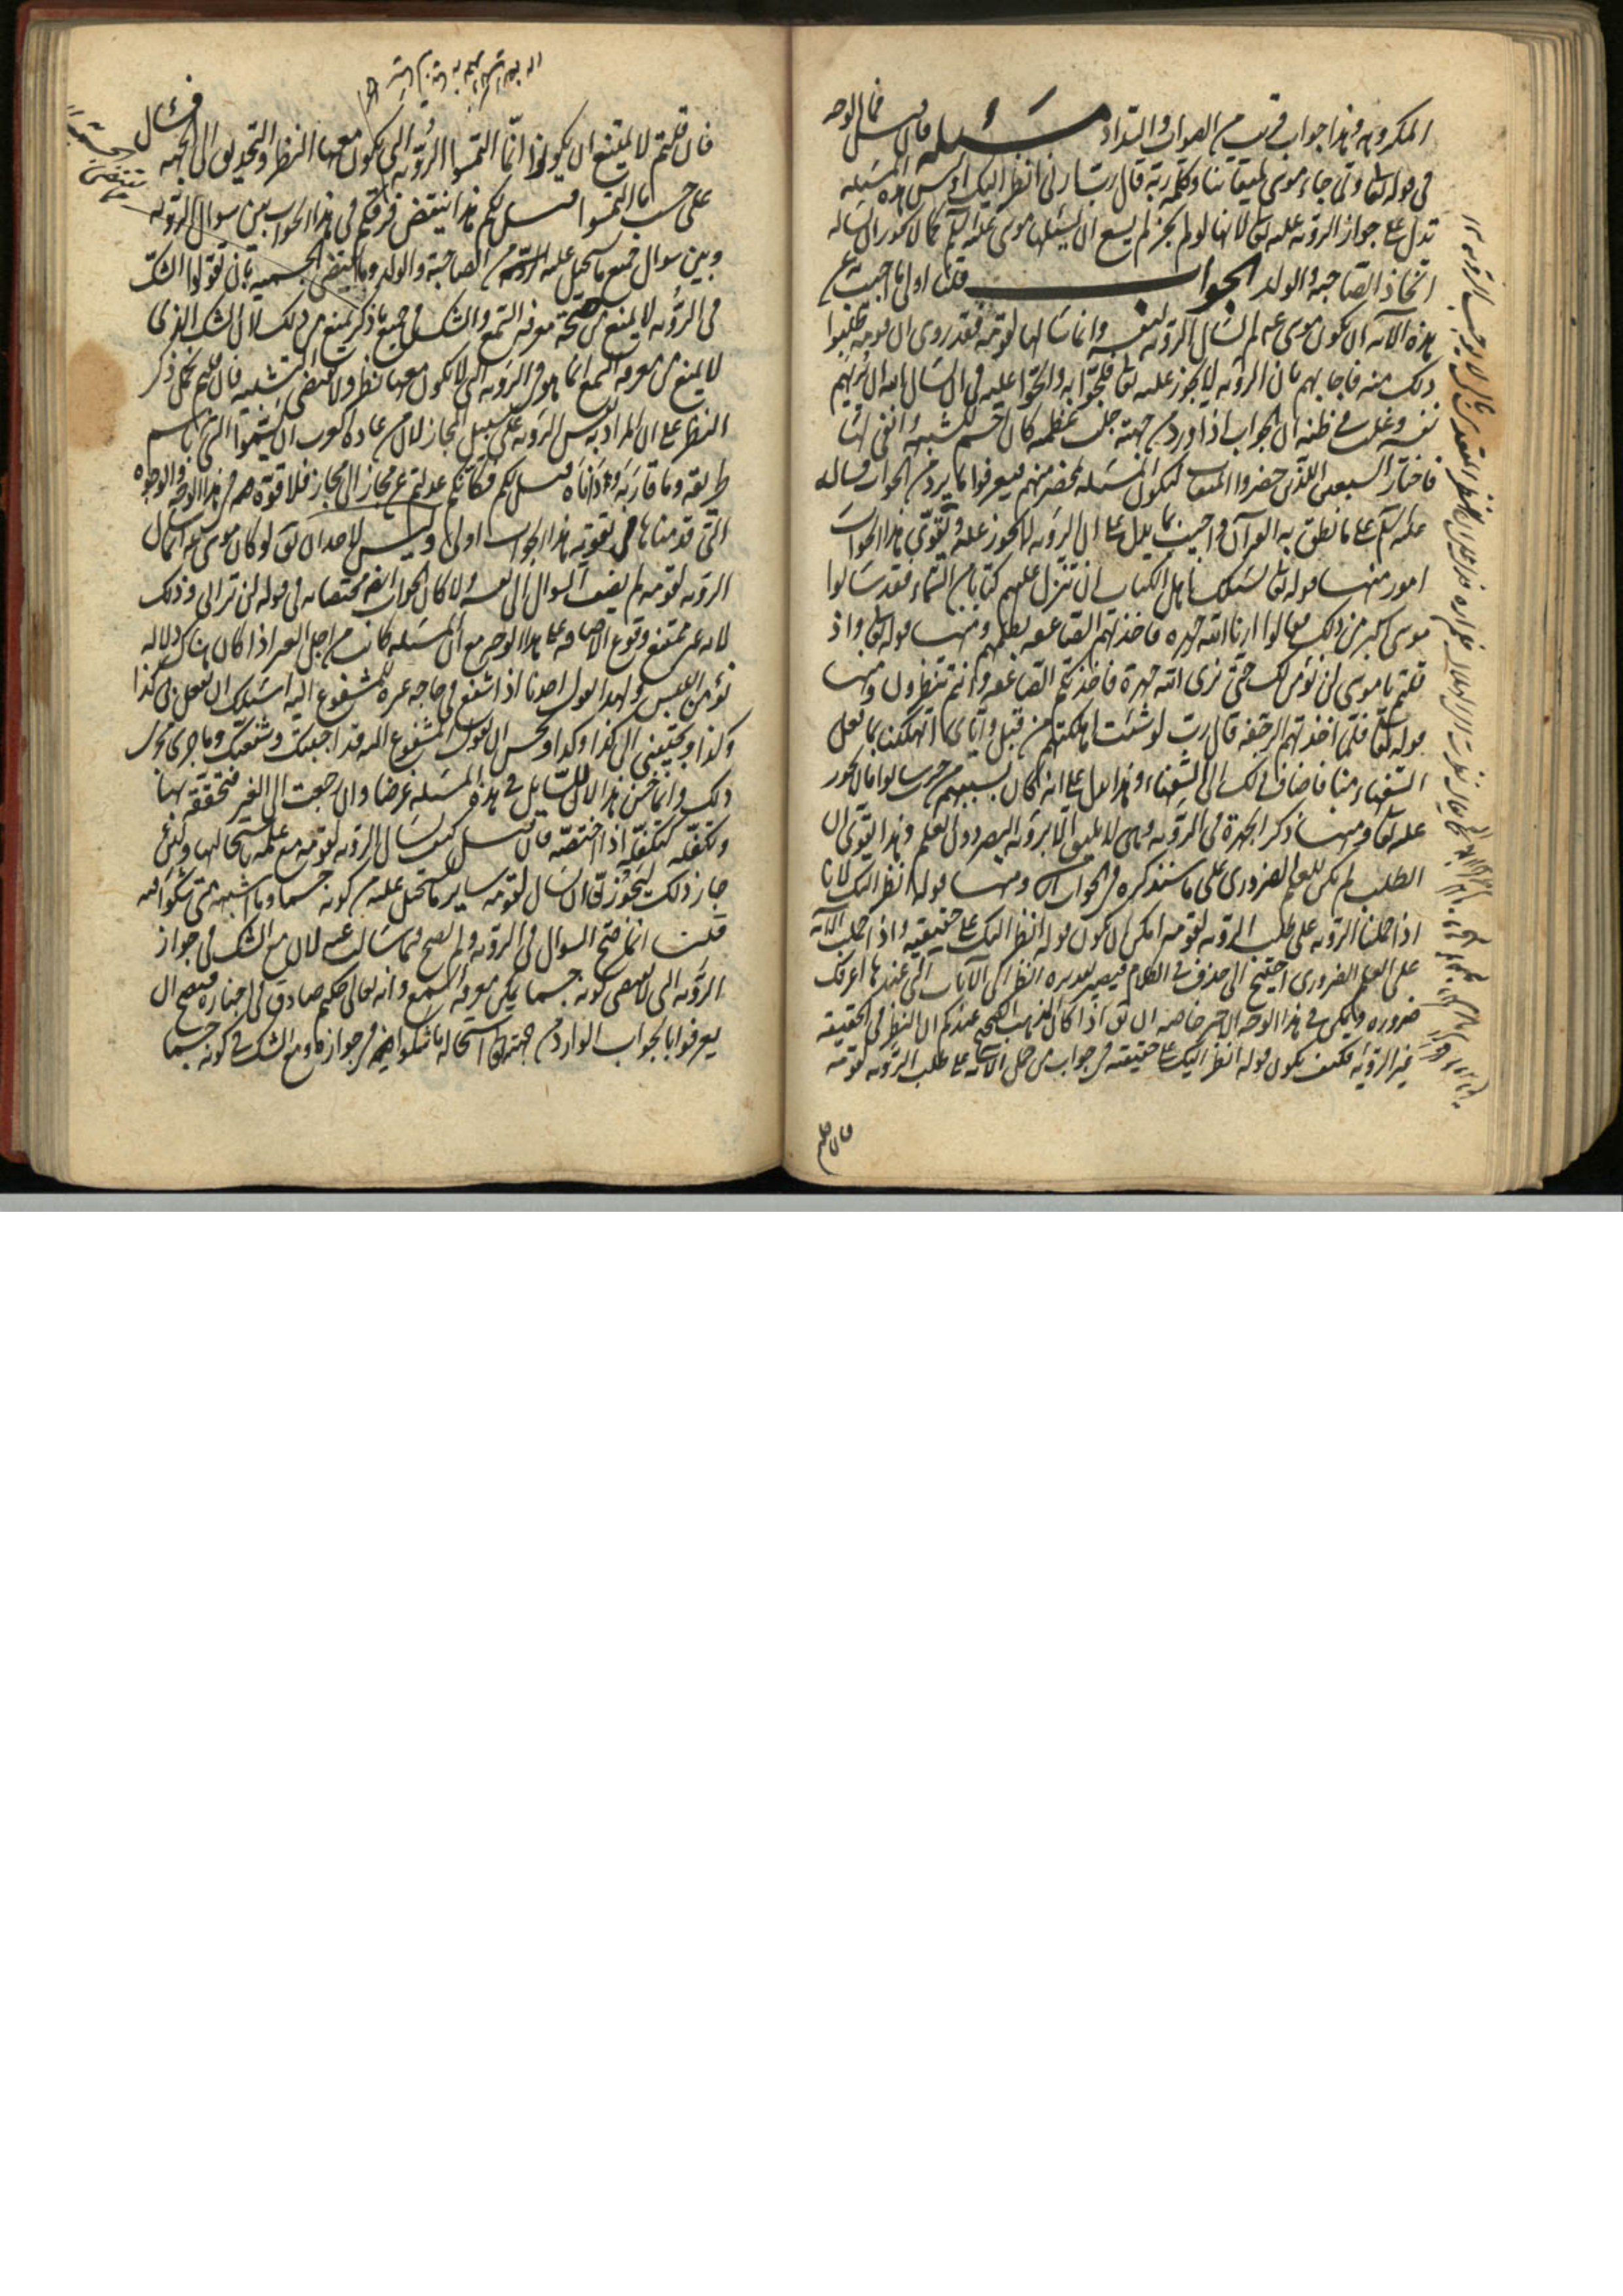 المكروهه وهذا جواب قريب من الصواب والسداد مسئلة فان قيل فما الوجه
في قوله تعالى ولما جاء موسى لميقاتنا وكلمه ربه قال رب ارني انظر اليك او ليس هذه المسئلة
تدل على جواز الرؤيه عليه تعالى لانها لو لم تجز لم يسغ ان يسئلها موسى عليه السلم كما لا يجوز ان يساله
اتخاذ الصاحبة والولد الجواب قلنا اولى ما اجيب به عن
هذه الآية ان يكون موسى عم لم يسال الرؤيه لنفسه وانما سالها لقومه فقد روى ان قومه طلبوا
ذلك منه فاجابهم بان الرؤيه لا يجوز عليه تعالى فلجوا به والحوا عليه في ان يسال الله ان يريهم
نفسه وغلب في ظنه ان الجواب اذا ورد من جهته جلت عظمته كان احسم للشبهة وانفى لها
فاختار السبعين اللذين حضروا الميقات لتكون المسئلة بمحضر منهم فيعرفوا ما يرد من الجواب فسال
عليه السلم على ما نطق به القرآن واجيب بما يدل على ان الرؤيه لا يجوز عليه ويقوى هذا الجواب
امور منها قوله تعالى يسئلك اهل الكتاب ان تنزل عليهم كتابا من السماء فقد سالوا
موسى اكبر من ذلك فقالوا ارنا الله جهرة فاخذتهم الصاعقه بظلمهم ومنها قوله تعالى واذ
قلتم يا موسى لن نؤمن لك حتى نرى الله جهرة فاخذتكم الصاعقه وانتم تنظرون ومنها
قوله تعالى فلما اخذتهم الرجفه قال رب لو شئت اهلكتهم من قبل واياى اتهلكنا بما فعل
السفهاء منا فاضاف ذلك الى السفهاء وهذا يدل على انه كان بسببهم من حيث سالوا ما لا يجوز
عليه تعالى ومنها ذكر الجهرة في الرؤيه وهى لا يليق الا برؤيه البصر دون العلم وهذا يقوى ان
الطلب لم يكن للعلم الضرورى على ما سنذكره في الجواب ومنها قوله انظر اليك لانا
اذا حملنا الرؤيه على طلب الرؤيه لقومه امكن ان يكون قوله انظر اليك على حقيقته واذا حمل الآية
على العلم الضرورى احتيج الى حذف في الكلام فيصير تقديره انظر الى الآيات التي عندها اعرفك
ضروره ويمكن في هذا الوجه الاخير خاصه ان يق اذا كان المذهب الصحيح عندكم ان النظر في الحقيقة
غير الرؤية فكيف يكون قوله انظر اليك على حقيقته في جواب من حمل الآية على طلب الرؤيه لقومه
فان قلتم
فان قلتم لا يمتنع ان يكونوا انما التمسوا الرؤيه التي يكون معها النظر والتحديق الى الجهه فسئال
على حسب ما التمسوا قيل لكم هذا ينتقض فرقكم في هذا الجواب بين سوال الرؤيه
وبين سوال جميع ما يستحيل عليه من الصاحبة والولد وما يقتضى الجسميه بان تقولوا الشك
في الرؤيه لا يمنع من صحة معرفه السمع والشك في جميع ما ذكر يمنع من ذلك لان الشك الذى
لا يمنع من معرفه السمع انما هو في الرؤيه التي لا يكون معها نظر ولا يقتضى التشبيه فان قلتم يحمل ذكر
النظر على ان المراد به نفس الرؤيه على سبيل المجاز لان من عاده العرب ان يسموا الشئ باسم
طريقه وما قاربه وداناه قيل لكم فكانكم عدلتم عن مجاز الى مجاز فلا قوة في هذا الوجه والوجوه
التي قدمناها في تقويه هذا الجواب اولى وليس لاحد ان يق لو كان موسى عم انما سال
الرؤيه لقومه لم يضف السوال الى نفسه ولا كان الجواب ايضا مختصا به في قوله لن ترانى وذلك
لانه غير ممتنع وقوع الاضافه على هذا الوجه مع ان المسئله كانت من اجل الغير اذا كان هناك دلاله
تؤمن اللبس ولهذا يقول احدنا اذا شفع في حاجه غيره للمشفوع اليه اسئلك ان تفعل بى كذا
وكذا وتجيبنى الى كذا وكذا ويحسن ان يقول المشفوع اليه قد اجبتك وشفعتك وما جرى مجرى
ذلك وانما حسن هذا لان للسائل في هذه المسئله غرضا وان رجعت الى الغير فتحققه بها
وتكفله كتكفله اذا اختصه فان قيل كيف يسال الرؤيه لقومه مع علمه باستحالتها ولئن
جاز ذلك ليجوز ان يسال لقومه ساير ما يستحيل عليه من كونه جسما وما اشبهه متى شكوا فيه
قلنا انما صح السوال في الرؤيه ولم يصح فيما سالت عنه لان مع الشك في جواز
الرؤيه التي لا يقتضى كونه جسما يمكن معرفه السمع وانه تعالى حكيم صادق في اخباره فيصح ان
يعرفوا بالجواب الوارد من جهته تعالى استحاله ما شكوا فيه وجوازه ومع الشك في كونه جسما